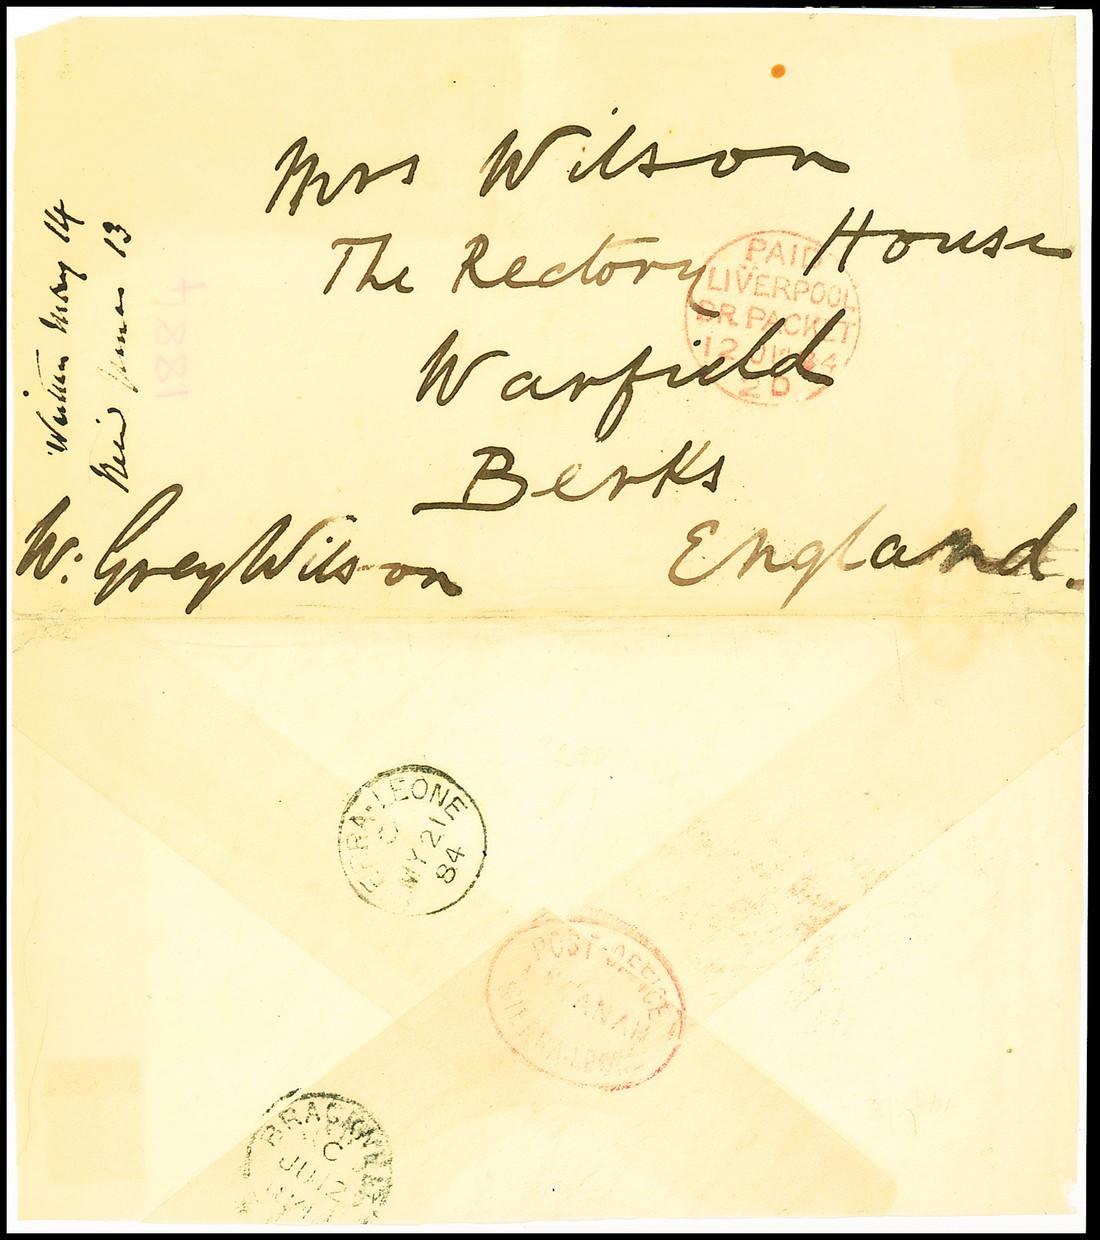 Mrs Wilson
The Rectory House
Warfield
Berks
England.
W. Grey Wilson
Written May 14
June 13
1884
PAID
LIVERPOOL
BR. PACKET
12 JU 84
2D
SIERRA-LEONE
C
MY 21
84
POST-OFFICE
SIERRA-LEONE
BRACKNELL
C
JU 12